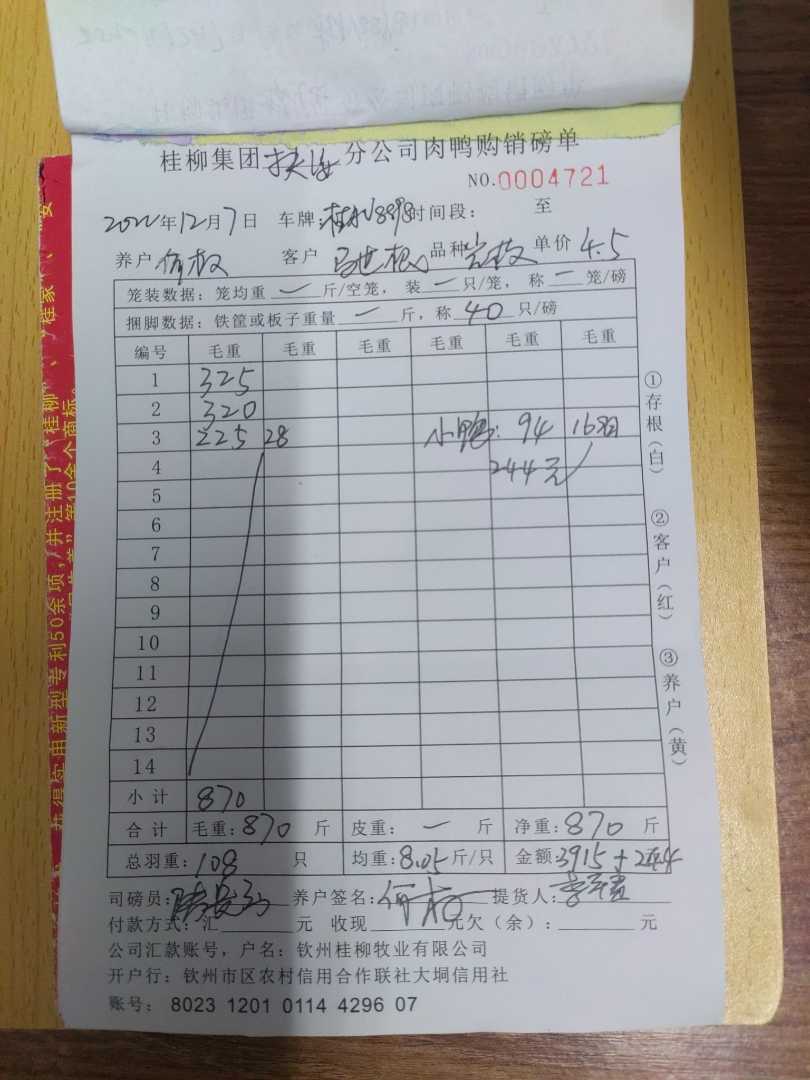 桂柳集团 分公司肉鸭购销磅单
NO.0004721
2022年12月7日 车牌: 时间段: 至
养户 客户 品种 单价 4.5
笼装数据: 笼均重 一 斤/空笼, 装 一 只/笼, 称 一 笼/磅
捆脚数据: 铁筐或板子重量 一 斤, 称 40 只/磅
编号 毛重 毛重 毛重 毛重 毛重 毛重
1 325
2 320
3 225 28 小鸭: 94 16羽
4 244元
5
6
7
8
9
10
11
12
13
14
小计 870
合计 毛重: 870 斤 皮重: 一 斤 净重: 870 斤
总羽重: 108 只 均重: 8.05 斤/只 金额: 3915 + 244
司磅员: 养户签名: 提货人:
付款方式: 汇 元 收现 元欠(余): 元
公司汇款账号, 户名: 钦州桂柳牧业有限公司
开户行: 钦州市区农村信用合作联社大垌信用社
账号: 8023 1201 0114 4296 07
①存根(白)
②客户(红)
③养户(黄)
获得实用新型专利50余项, 并注册了“桂柳”、“桂家”、
第10余个商标。